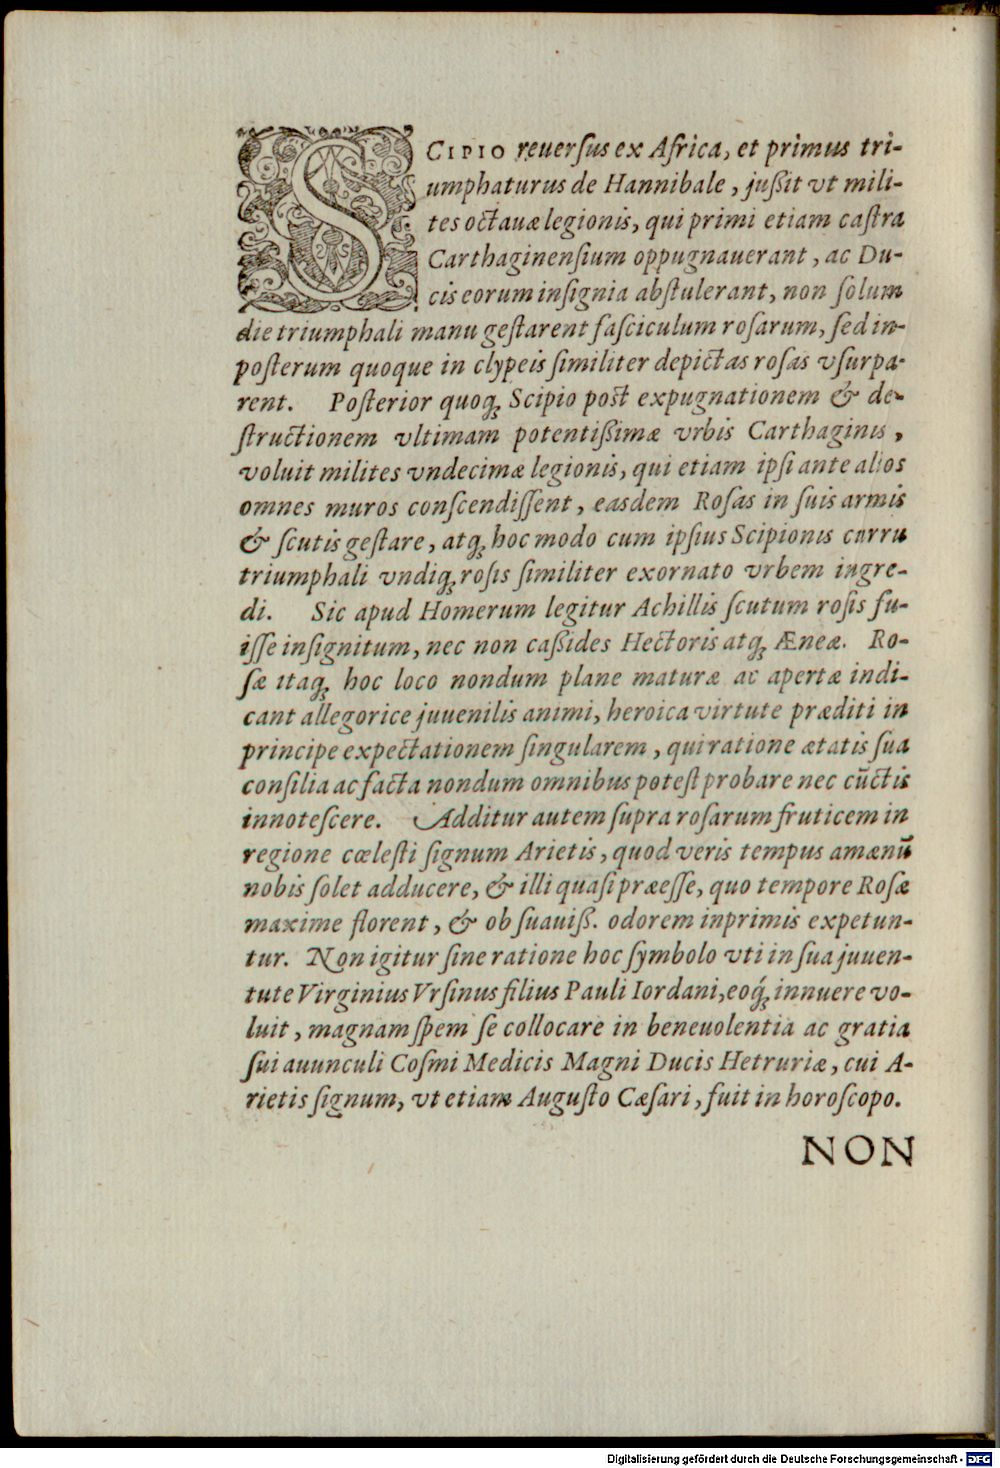 SCIPIO reuerſus ex Africa, et primus tri-
umphaturus de Hannibale, jußit vt mili-
tes octauæ legionis, qui primi etiam caſtra
Carthaginenſium oppugnauerant, ac Du-
cis eorum inſignia abſtulerant, non ſolum
die triumphali manu geſtarent faſciculum roſarum, ſed in-
poſterum quoque in clypeis ſimiliter depictas roſas vſurpa-
rent. Poſterior quoq́ꝫ Scipio poſt expugnationem & de-
ſtructionem vltimam potentißimæ vrbis Carthaginis,
voluit milites vndecimæ legionis, qui etiam ipſi ante alios
omnes muros conſcendiſſent, easdem Roſas in ſuis armis
& ſcutis geſtare, atqꝫ hoc modo cum ipſius Scipionis curru
triumphali vndiqꝫ roſis ſimiliter exornato vrbem ingre-
di. Sic apud Homerum legitur Achillis ſcutum roſis fu-
iſſe inſignitum, nec non caßides Hectoris atqꝫ Æneæ. Ro-
ſæ itaqꝫ hoc loco nondum plane maturæ ac apertæ indi-
cant allegorice juuenilis animi, heroica virtute præditi in
principe expectationem ſingularem, qui ratione ætatis ſua
conſilia ac facta nondum omnibus poteſt probare nec cūctis
innoteſcere. Additur autem ſupra roſarum fruticem in
regione cœleſti ſignum Arietis, quod veris tempus amænū
nobis ſolet adducere, & illi quaſi præeſſe, quo tempore Roſæ
maxime florent, & ob ſuauiß. odorem inprimis expetun-
tur. Non igitur ſine ratione hoc ſymbolo vti in ſua juuen-
tute Virginius Vrſinus filius Pauli Iordani, eoq́ꝫ innuere vo-
luit, magnam ſpem ſe collocare in beneuolentia ac gratia
ſui auunculi Coſmi Medicis Magni Ducis Hetruriæ, cui A-
rietis ſignum, vt etiam Auguſto Cæſari, fuit in horoſcopo.
NON
Digitalisierung gefördert durch die Deutsche Forschungsgemeinschaft - DFG